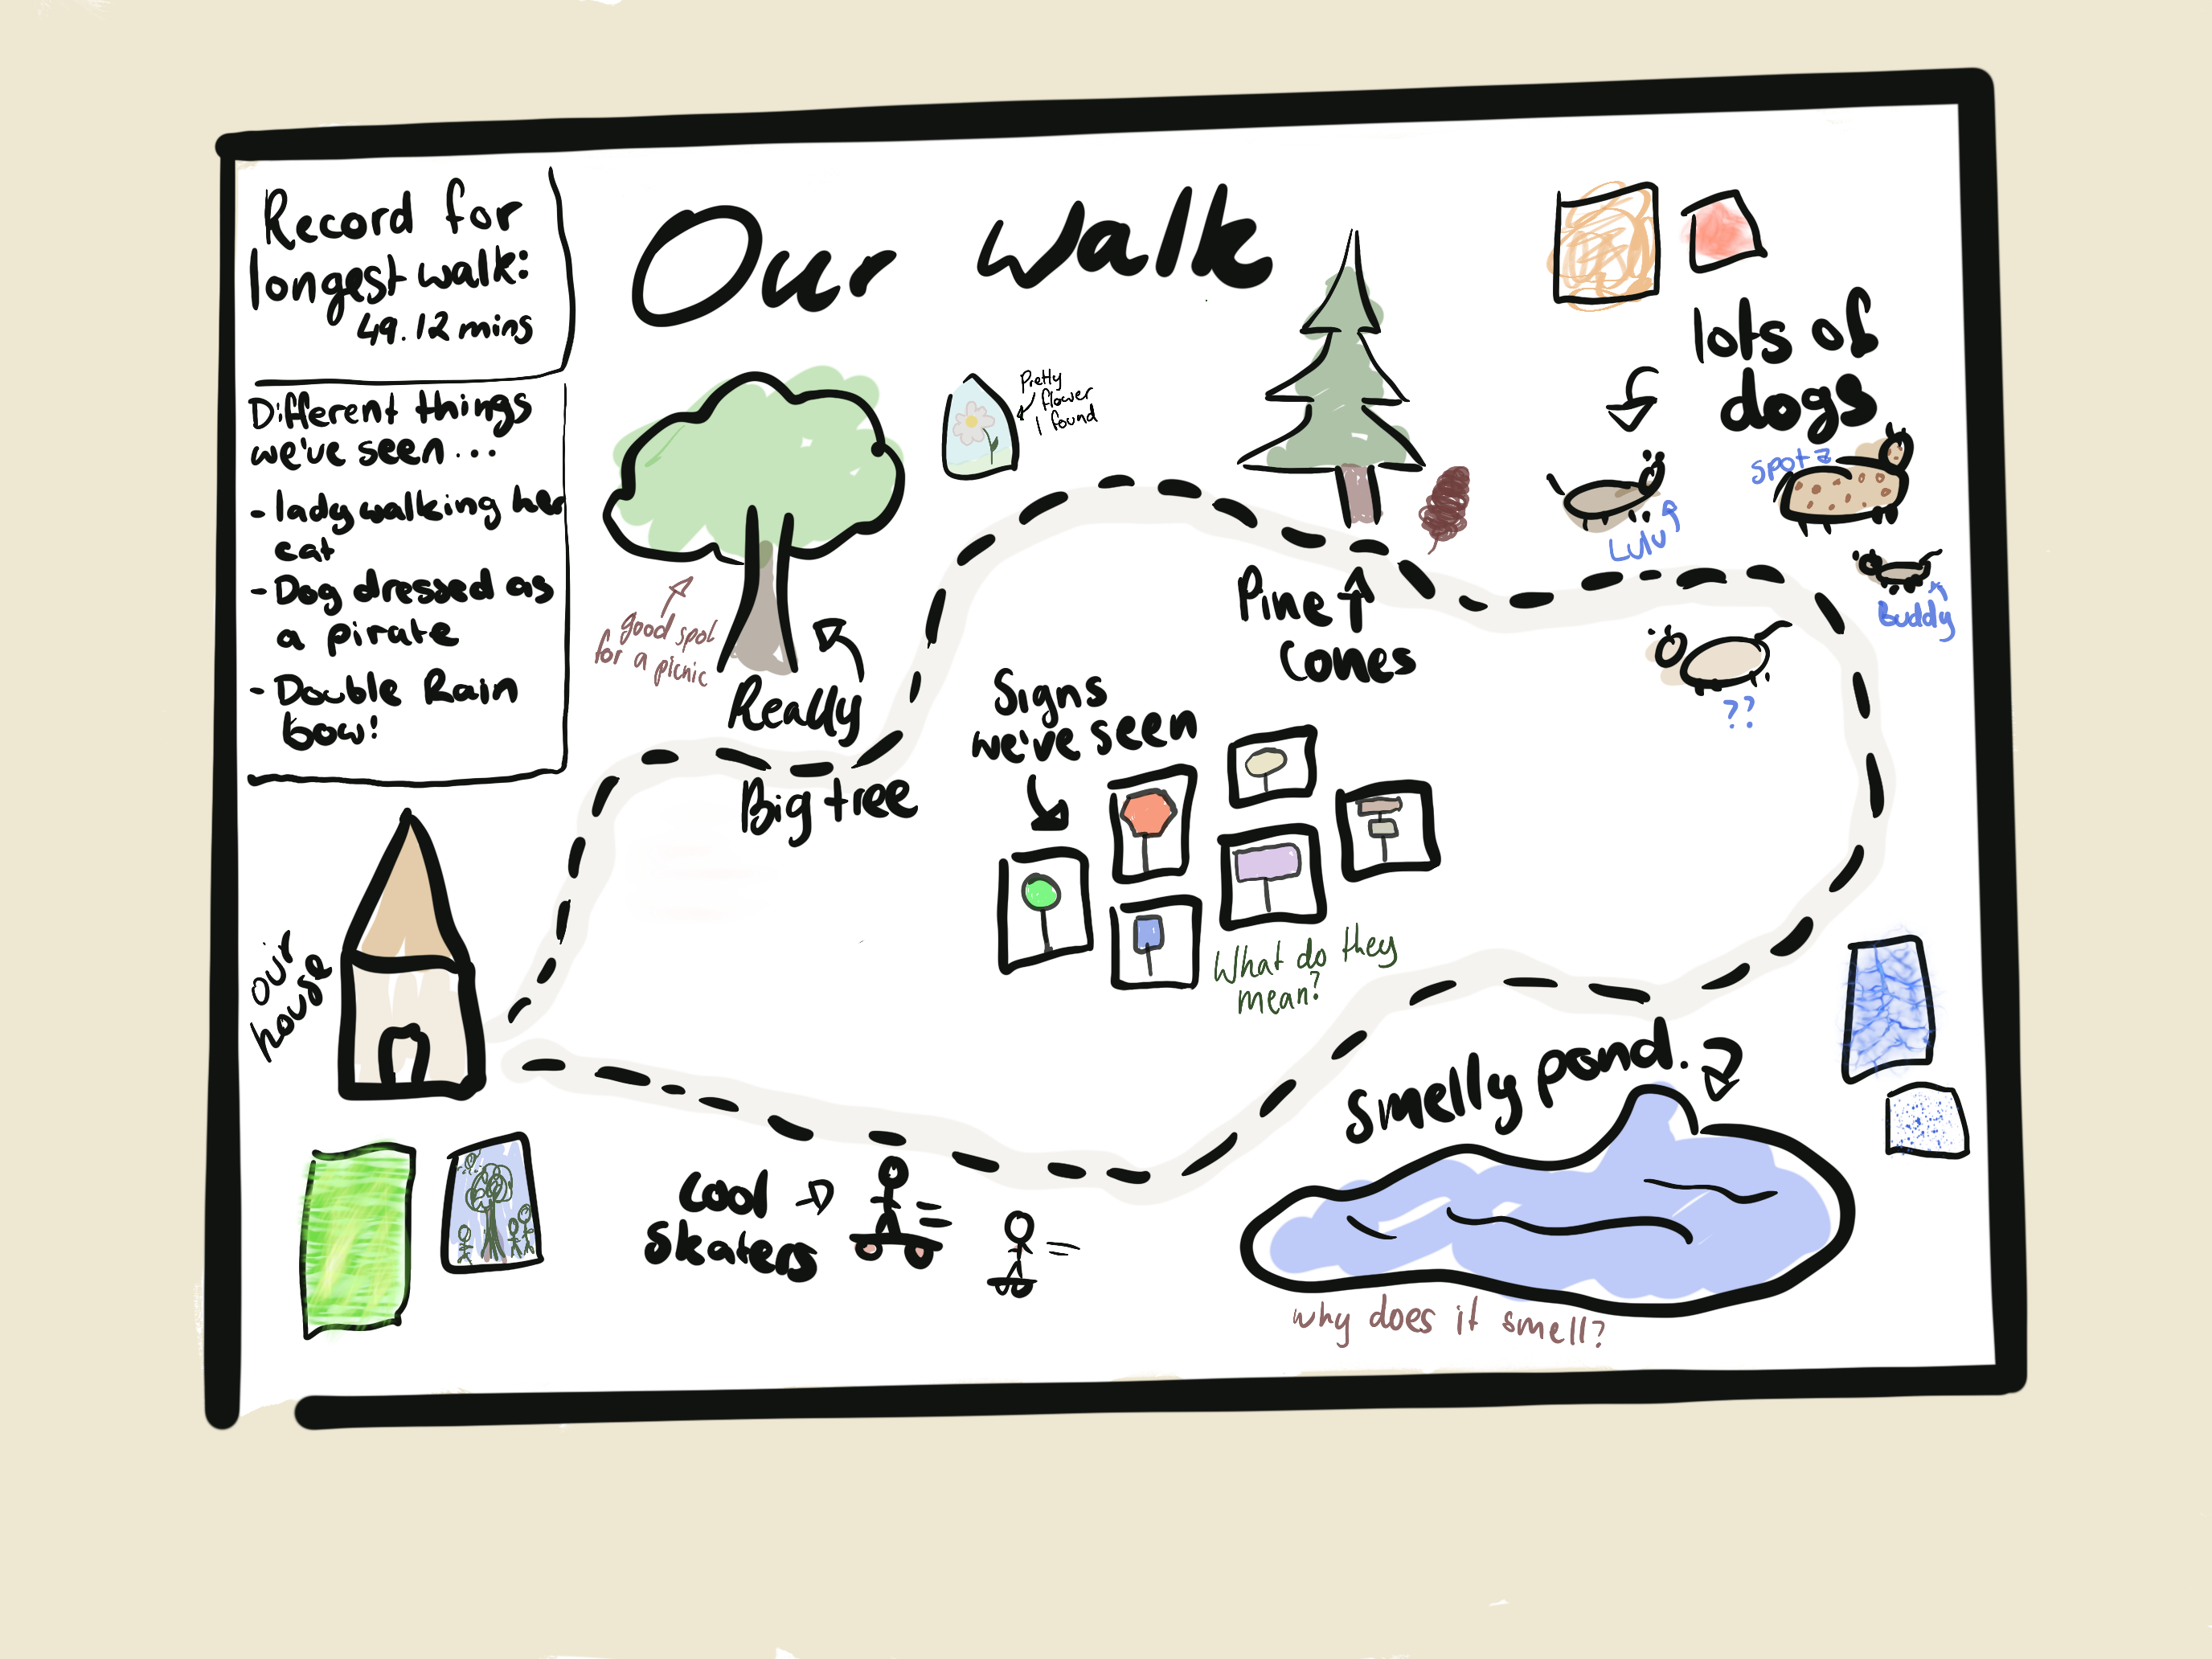 Record for
longest walk:
49.12 mins
Different things
we've seen...
- lady walking her
cat
- Dog dressed as
a pirate
- Double Rain
bow!
Our walk
Pretty
flower
I found
lots of
dogs
Spotz
Lulu
Buddy
??
good spot
for a picnic
Really
Big tree
Pine
Cones
Signs
we've seen
What do they
mean?
our
house
Smelly pond.
why does it smell?
Cool
Skaters